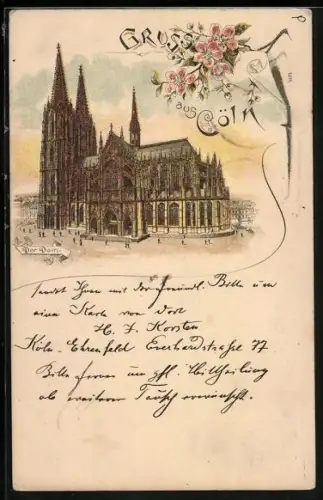 GRUSS
aus
Cöln
Der Dom.
sendet Ihnen mit der freundl. Bitte um
eine Karte von dort
H. J. Korsten
Köln-Ehrenfeld Everhardstraße 77
Bitte ferner um gfl. Mittheilung
ob weiterer Tausch erwünscht.